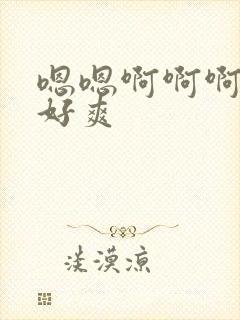 嗯嗯啊啊啊
好爽
淡漠凉